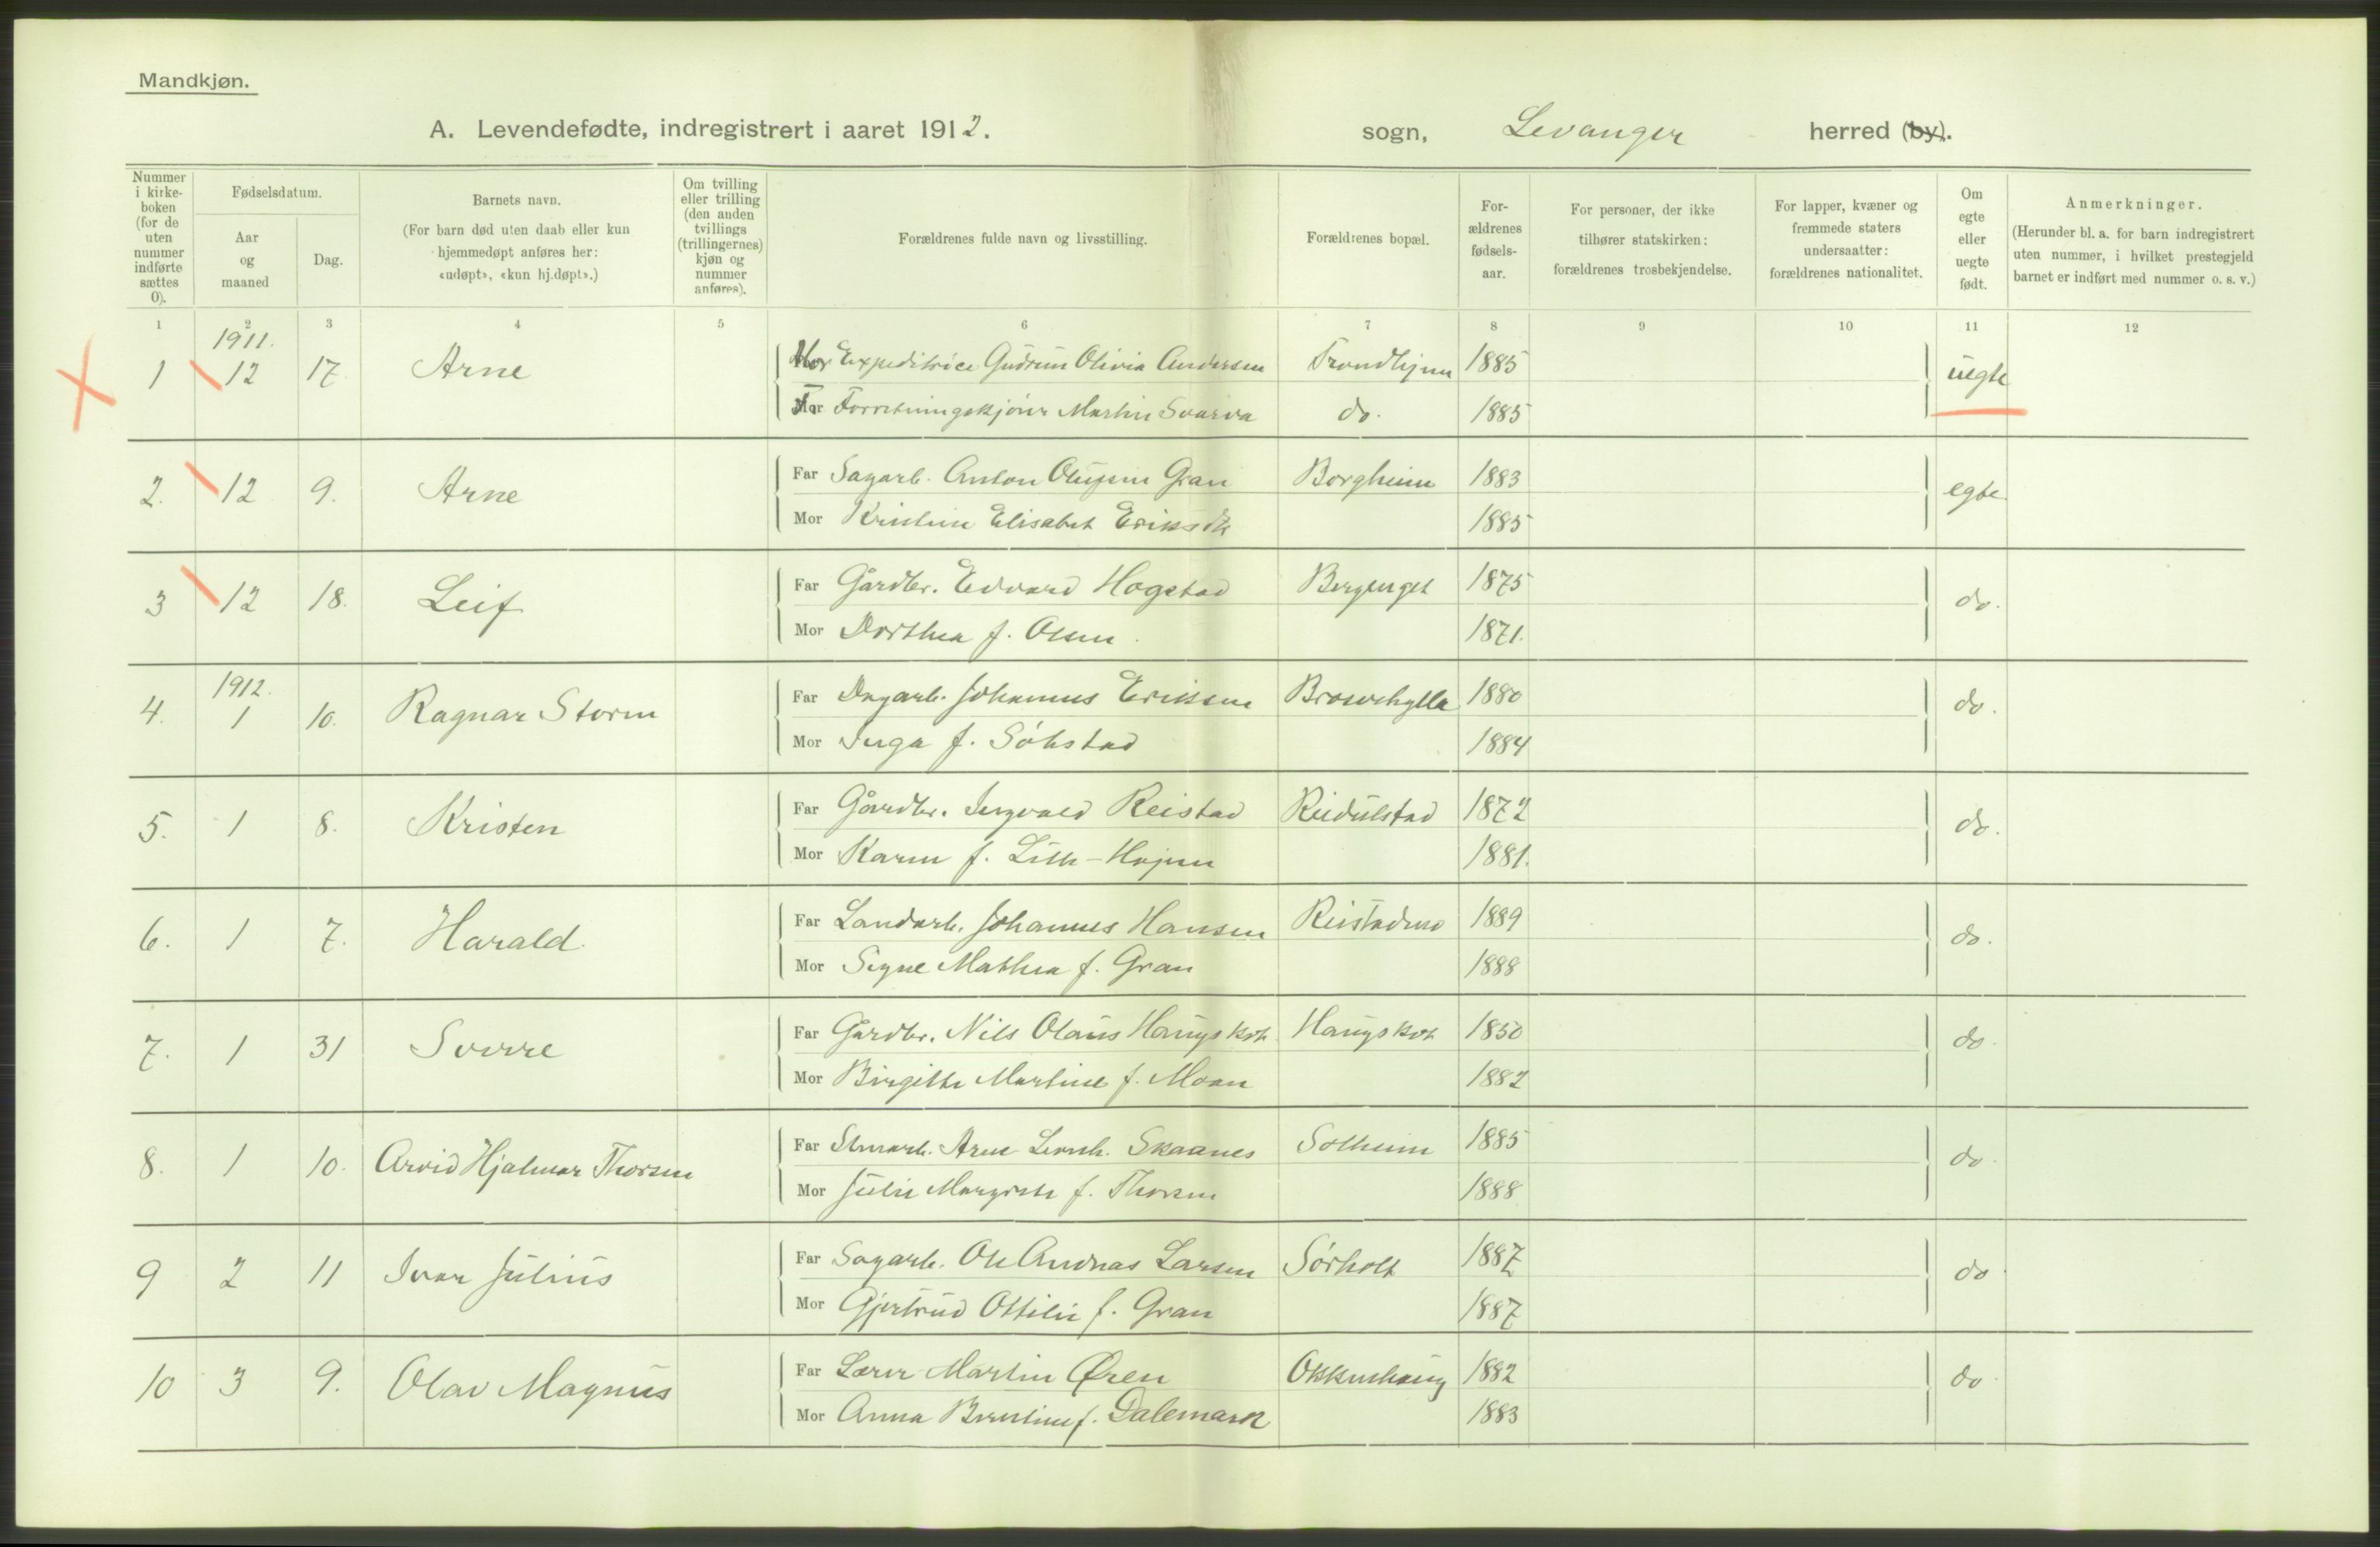 Mandkjøn.
A. Levendefødte, indregistrert i aaret 1912. sogn, Levanger herred (by).
Nummer i kirkeboken (for de uten nummer indførte sættes 0).
Fødselsdatum.
Aar og maaned
Dag.
Barnets navn.
(For barn død uten daab eller kun hjemmedøpt anføres her: «udøpt», «kun hj.døpt».)
Om tvilling eller trilling (den anden tvillings (trillingernes) kjøn og nummer anføres).
Forældrenes fulde navn og livsstilling.
Forældrenes bopæl.
Forældrenes fødselsaar.
For personer, der ikke tilhører statskirken: forældrenes trosbekjendelse.
For lapper, kvæner og fremmede staters undersaatter: forældrenes nationalitet.
Om egte eller uegte født.
Anmerkninger.
(Herunder bl. a. for barn indregistrert uten nummer, i hvilket prestegjeld barnet er indført med nummer o. s. v.)
1 2 3 4 5 6 7 8 9 10 11 12
1911.
1 12 17. Arne Mor Expeditrice Gudrun Olivia Andersen Trondhjem 1885 uegte
Far Forretningskjører Martin Svarva do. 1885
2. 12 9. Arne Far Sagarb. Anton Gran Borgheim 1883 egte.
Mor Kristine Elisabet Eriksdtr 1885
3 12 18. Leif Far Gårdbr. Edvard Hogstad Bergenget 1875 do.
Mor Dorthea f. Olsen. 1871.
1912.
4. 1 10. Ragnar Storm Far Dagarb. Johannes Eriksen 1880 do.
Mor Inga f. Söhstad 1884
5. 1 8. Kristen Far Gårdbr. Ingvald Reistad Reidulstad 1872 do.
Mor Karen f. Lilh-Hojem 1881.
6. 1 7. Harald. Far Landarb. Johannes Hansen Reistadmo 1889 do.
Mor Signe Mathea f. Gran 1888
7. 1 31 Sverre Far Gårdbr. Nils Olaus Haugskot Haugskot 1850 do.
Mor Birgitte Martine f. Moan 1882
8. 1 10. Arvid Hjalmar Thorsen Far Arne Leonh. Skaanes Solheim 1885 do.
Mor Julie Margrete f. Thorsen 1888
9 2 11 Ivar Julius Far Sagarb. Ole Andreas Larsen Sörholt 1887 do
Mor Gjertrud Ottilie f. Gran 1887
10 3 9. Olav Magnus Far Lærer Martin Øren Okkenhaug 1882 do
Mor Anna f. Dalemark 1883